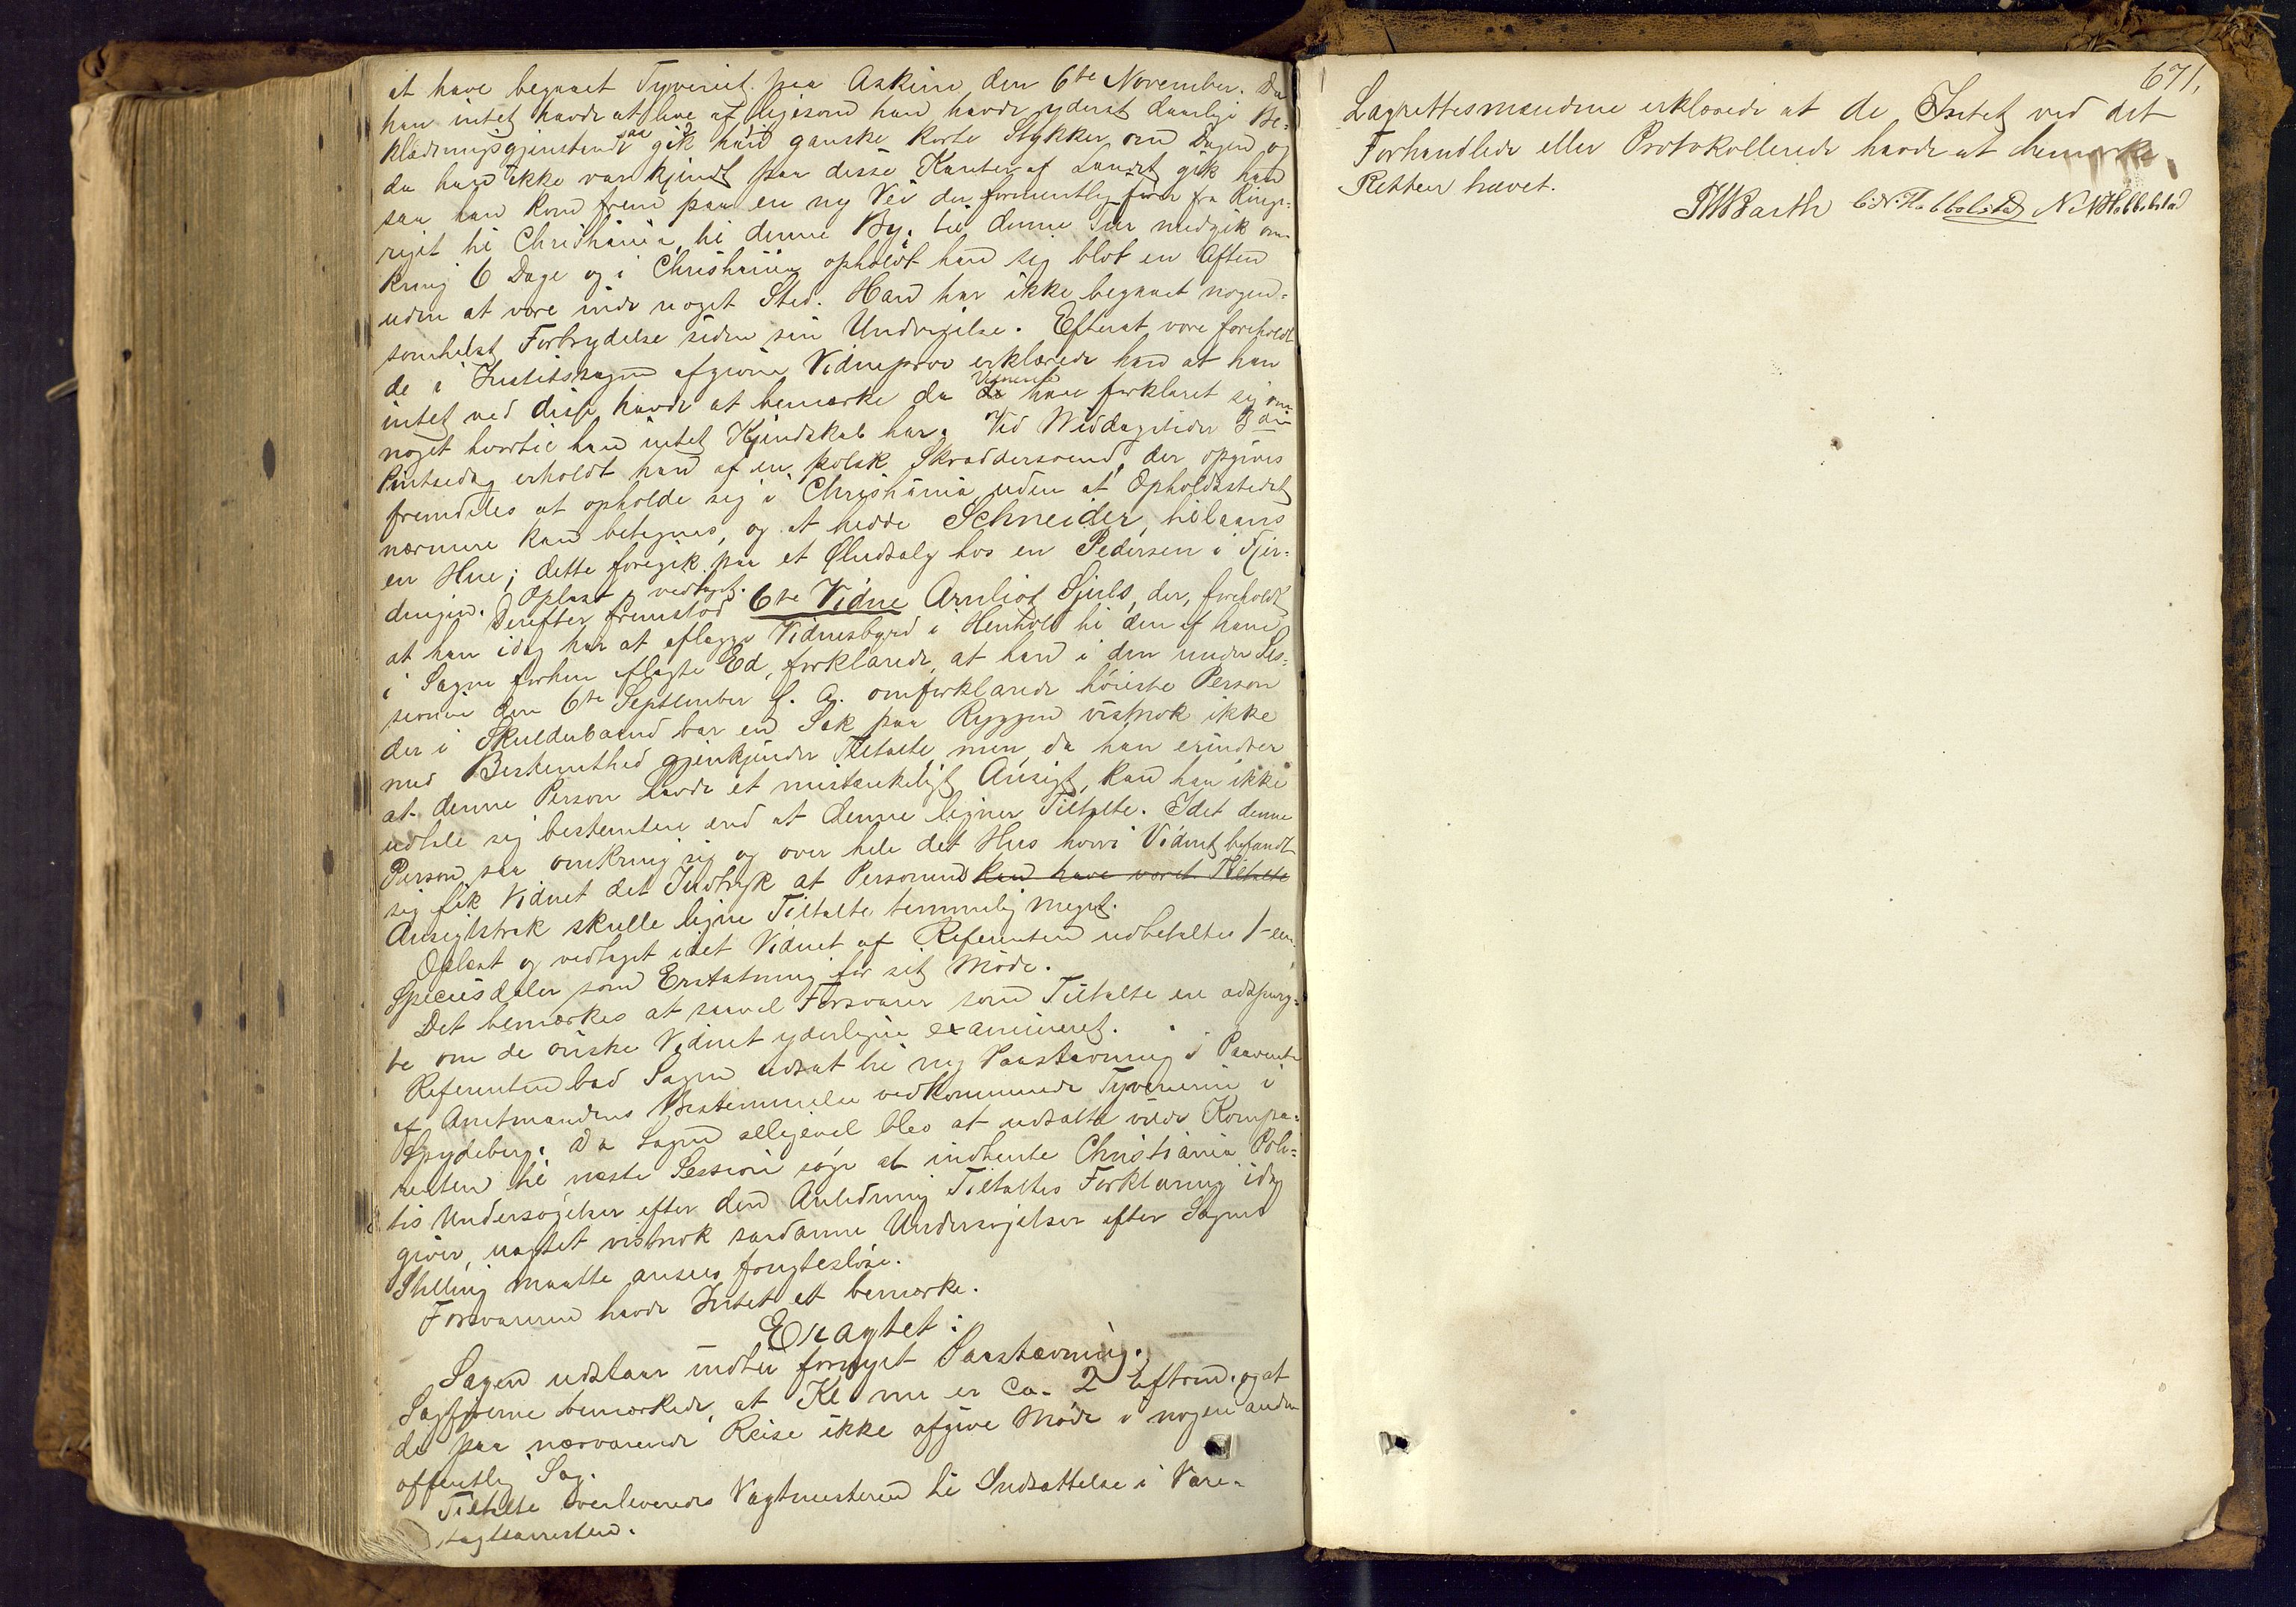 at have begaaet Tyveriet paa Askim den 6te November. Da
han intet havde at leve af ligesom han havde yderst daarlige Be-
klædningsgjenstande saa gik han ganske korte Stykker om Dagen og
da han ikke var kjendt paa disse Kanter af Landet gik han
saa han kom frem paa en ny Vei der formentlig fører fra Ringe-
riget til Christiania, til denne By. til denne Tur medgik om-
kring 6 Dage og i Christiania opholdt han sig blot en Aften
uden at være inde noget Sted. Han har ikke begaaet nogen-
somhelst Forbrydelse siden sin Undvigelse. Efterat være foreholdt
de i Justitssagen afgivne Vidneprov erklærede han at han
intet ved disse havde at bemærke da Vidnerne have forklaret sig om
noget hvortil han intet Kjendskab har. Ved Middagstider 3die
Pintsedag erholdt han af en polsk Skræddersvend, der opgives
fremdeles at opholde sig i Christiania uden at Opholdsstedet
nærmere kan betegnes, og at hedde Schneider, tillaans
en Hue; dette foregik paa et Øludsalg hos en Pedersen i Fjer-
dingen. Oplæst, vedtaget.
Derefter fremstod 6te Vidne Arnliot Sjuls, der, foreholdt
at han idag har at aflægge Vidnesbyrd i Henhold til den af ham
i Sagen forhen aflagte Ed, forklarede, at han i den under Ses-
sionen den 6te September d. A. omforklarede høieste Person
der i Skulderbaand bar en Sæk paa Ryggen vistnok ikke
med Bestemthed gjenkjender Tiltalte, men, da han erindrer
at denne Person havde et mistænkeligt Ansigt, kan han ikke
udtale sig bestemtere end at denne ligner Tiltalte. Idet denne
Person saa omkring sig og over hele det Hus hvori Vidnet befandt
sig fik Vidnet det Indtryk at Personens kan have været Tiltalte
Ansigtstræk skulle ligne Tiltalte temmelig meget.
Oplæst og vedtaget idet Vidnet af Referenten udbetaltes 1 - een
Speciesdaler som Erstatning for sit Møde.
Det bemærkes at saavel Forsvarer som Tiltalte ere adspurg-
te om de ønske Vidnet yderligere examineret.
Referenten bad Sagen udsat til ny Paastævning i Paavente
af Amtmandens Bestemmelse vedkommende Tyverierne i
Spydeberg. Da Sagen alligevel blev at udsætte vilde Kompa-
renten til næste Session søge at indhente Christiania Poli-
tis Undersøgelser efter den Anledning Tiltaltes Forklaring idag
giver, uagtet vistnok saadanne Undersøgelser efter Sagens
Stilling maatte ansees frugtesløse.
Forsvareren havde Intet at bemærke.
Eragtet:
Sagen udstaar indtil fornyet Paastævning.
Sagførerne bemærkede, at Kl nu er ca. 2 Eftrm. og at
de paa nærværende Reise ikke afgive Møde i nogen anden
offentlig Sag.
Tiltalte overleveredes Vagtmesteren til Indsættelse i Vare-
tægtsarresten.
671.
Lagrettesmændene erklærede at de Intet ved det
Forhandlede eller Protokollerede havde at bemærke.
Retten hævet.